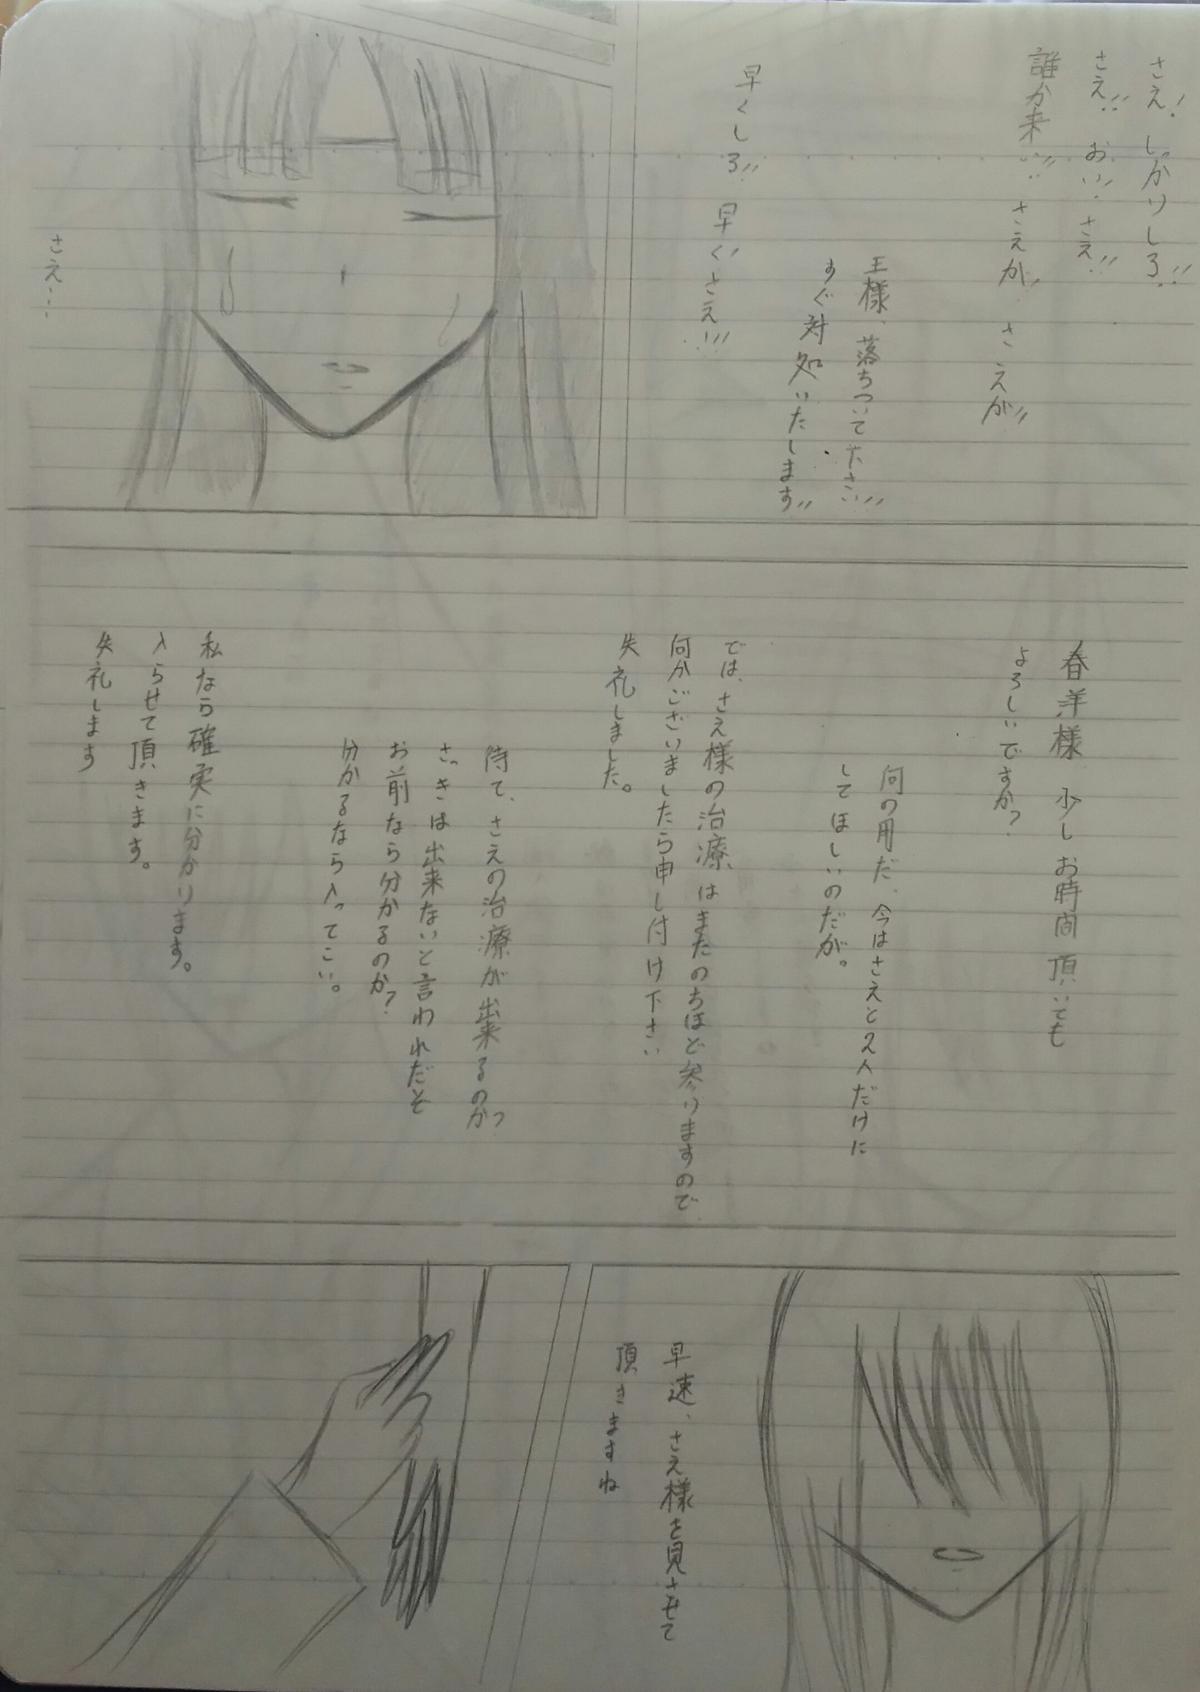 さえ！しっかりしろ!!
さえ!! おい!! さえ!!
誰か来い!! さえが!! さえが!!
王様、落ちついて下さい!!
すぐ対処いたします!!
早くしろ!! 早く!! さえ!!!
さえ…
春洋様 少しお時間頂いても
よろしいですか?
何の用だ、今はさえと2人だけに
してほしいのだが。
では、さえ様の治療はまたのちほど参りますので
何かございましたら申し付け下さい
失礼しました。
待て、さえの治療が出来るのか?
さっきは出来ないと言われだぞ
お前なら分かるのか?
分かるなら入ってこい。
私なら確実に分かります。
入らせて頂きます。
失礼します
早速、さえ様を見させて
頂きますね